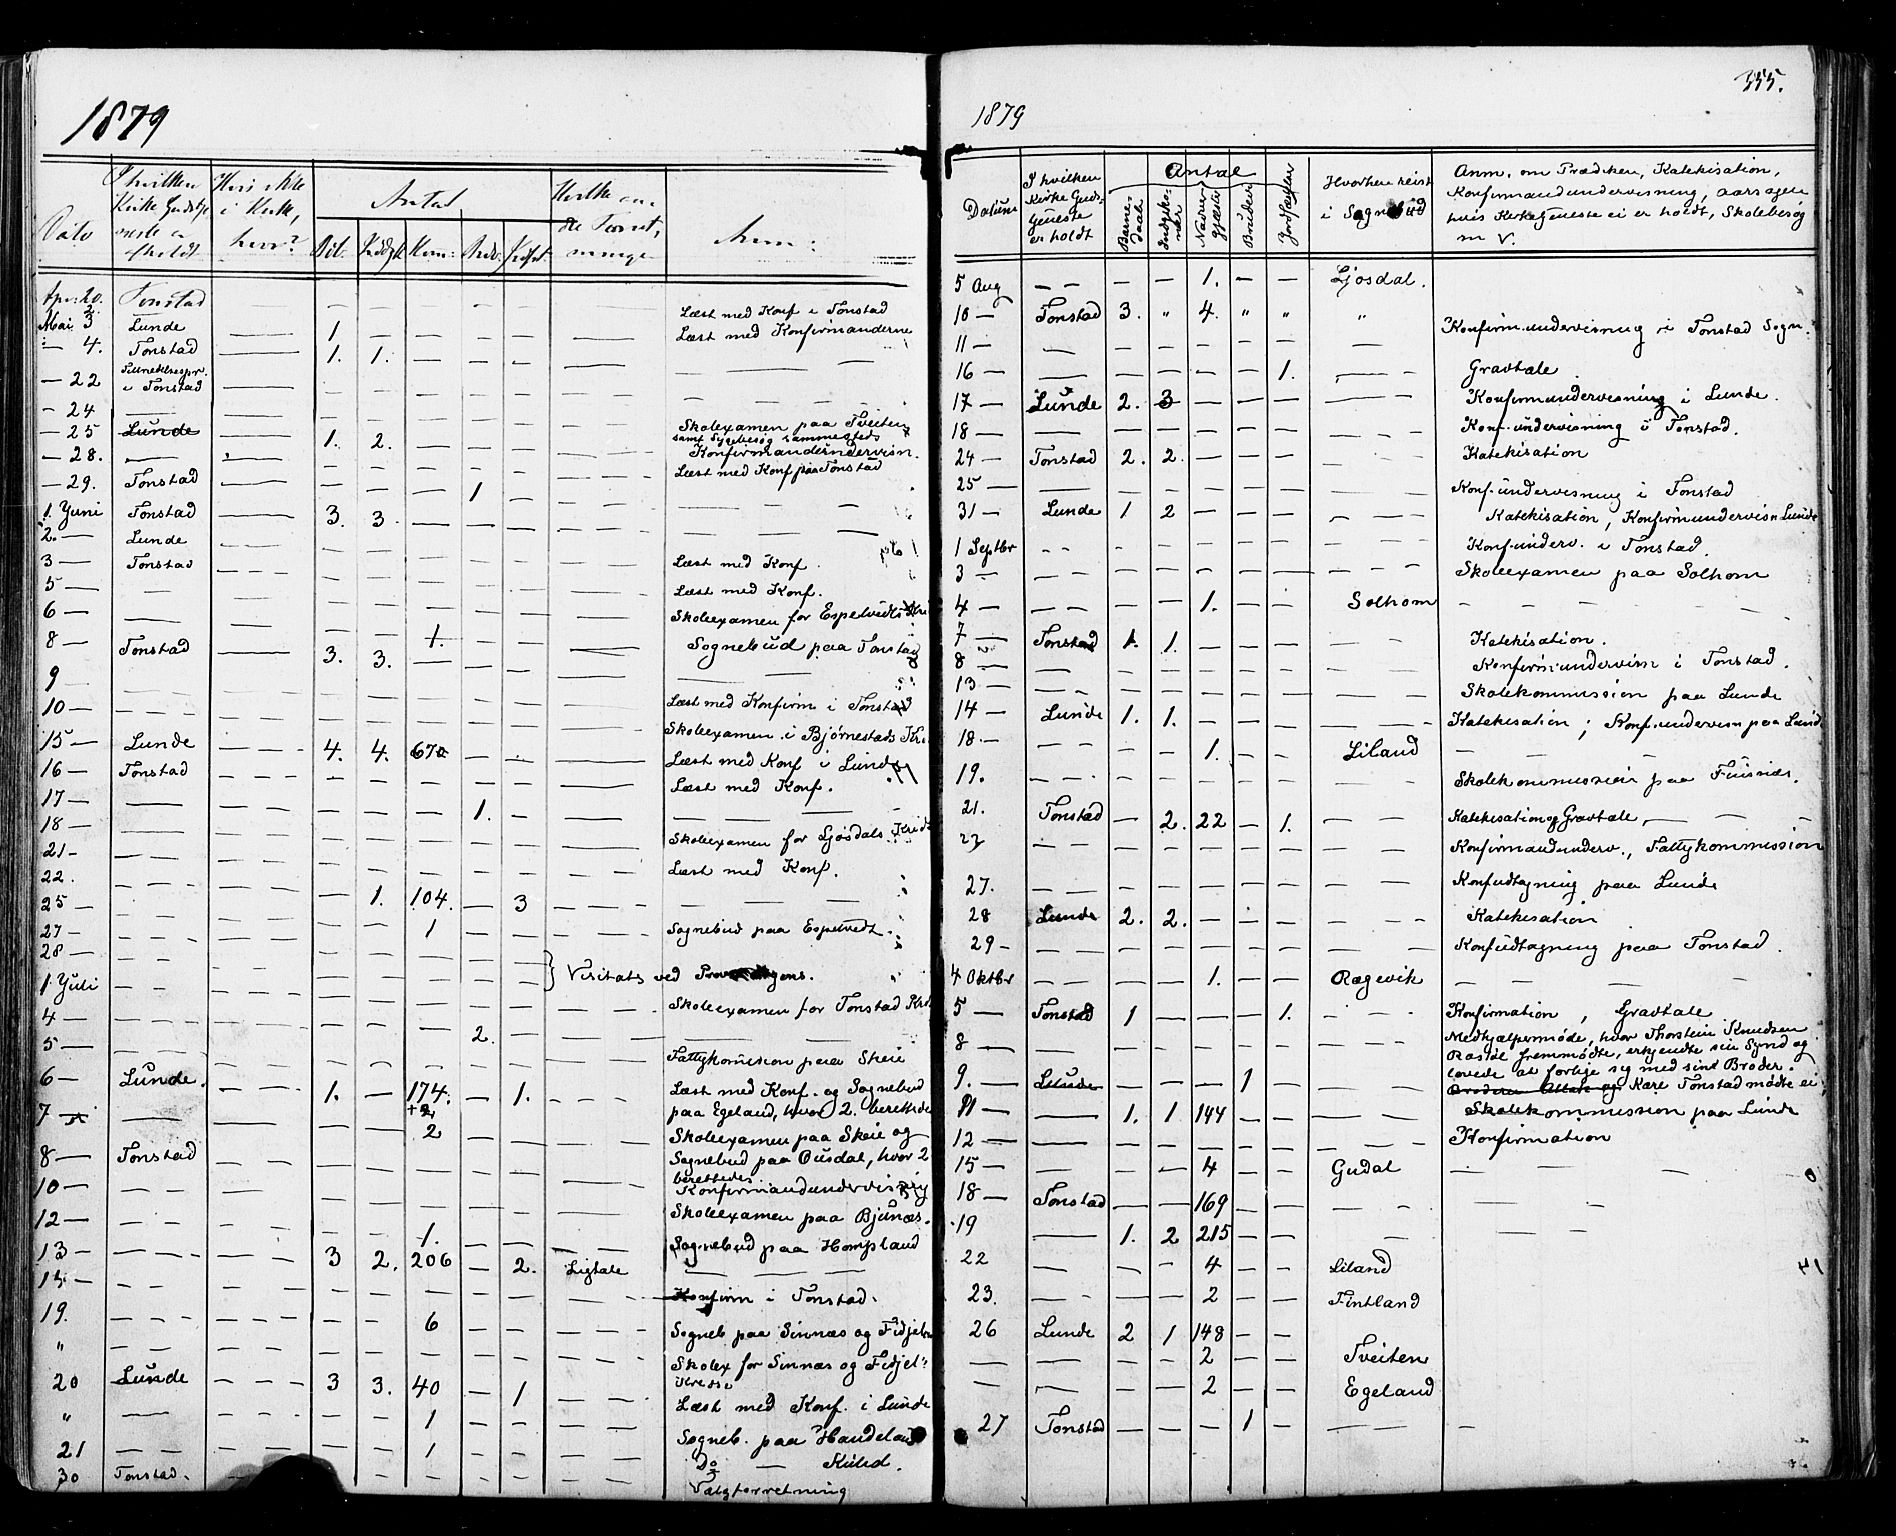 1879
Dato
I hvilken Kirke Gudstjeneste er afholdt
Hvis ikke i Kirke, hvor?
Antal
Anm:
Apr. 20. Tonstad — — — — — — Læst med Konf i Tonstad
Mai 3 Lunde — 1 — — — — Læst med Konfirmanderne
— 4. Tonstad — 1. 1. — — — —
— 22 i Tonstad — — — — — —
— 24 — — — — — —
— 25 Lunde — 1. 2. — — — Skoleexamen paa Tveiten
samt Sygebesøg sammesteds
— 28. — — — — — — Konfirmandundervisn.
— 29. Tonstad — — — — 1 — Læst med Konf paa Tonstad
1. Juni Tonstad — 3. 3. — — — —
2. — Lunde — — — — — —
3 — Tonstad — — — — — Læst med Konf.
5 — — — — — — Læst med Konf.
6 — — — — — — Skoleexamen for Espetvedts Kr
8 — Tonstad — 3. 3. 1. — — Sognebud paa Tonstad
9 — — — — — —
10 — — — — — — Læst med Konfirm i Tonstad
Skoleexamen i Bjørnestads Kr.
15 — Lunde — 4. 4. 670 — — Læst med Konf i Lunde
16 — Tonstad — — — — — Læst med Konf.
17 — — — — — 1. — —
18 — — — — — — Skoleexamen for Ljosdals Krids
21 — — — — — — Læst med Konf.
22. — — — — — —
25 — — — 1. 104. — 3 —
27 — — — — 1 — — Sognebud paa Espetvedt.
28 — — — — — —
1. Juli — — — — — Visitats ved
4 — — — — — — Skoleexamen for Tonstad Kr
5 — — — — — 2. — —
6 — Lunde. — 1. — 174. — 1. Fattykomission paa Skeie
+2
Læst med Konf. og Sognebud
paa Egeland, hvor 2. berettedes
7 — — — — 2 — — Skoleexamen paa Skeie og
8 — Tonstad — — — — — Sognebud paa Ousdal, hvor 2
berettedes
10 — — — — — — Konfirmandundervisning
12 — — — — 1. — — Skoleexamen paa Bjunæs.
Sognebud paa Hompland
13 — — — 3 2. 206 — 2. Ligtale —
15. — — — — — — Konfirm i Tonstad.
19. — — — — 6 — — Sogneb paa Sinnæs og Fidjeland
" — — — — — — Skolex for Sinnæs og Fidjel:
Kreds
20 Lunde — 3 3. 40 — 1 Læst med Konf. i Lunde
" — — — — 1 — — Sogneb. paa Haudeland
21 — — — — 1 — — Do — Kulid.
30 Tonstad. — — — — — Valgforretning
355.
1879
Datum
I hvilken Kirke Gudstjeneste er holdt
Antal
Barnedaab
Indgiks-
Nadvergjæster
Bruden
Jordfæstn
Hvorhen reist i Sognebud
Anm. om Prædiken, Katekisation,
Konfirmandundervisning, aarsagen
hvis Kirketjeneste ei er holdt, Skolebesøg
m. v.
5 Aug — — — 1. — — Ljosdal.
10 — Tonstad 3. " 4. " " " Konfirm.undervisning i Tonstad Sogn.
11 — — — — — — — —
16 — — — — — — 1. — Gravtale
17 — Lunde 2. 3 — — — — Konfirmundervisning i Lunde.
18 — — — — — — — Konf.undervisning i Tonstad.
24 — Tonstad 2. 2. — — — — Katekisation
25 — — — — — — — — Konf.undervisning i Tonstad
31 — Lunde 1 2 — — — — Katekisation, Konfirmundervisn Lunde
1 Septbr — — — — — — — Konf.underv. i Tonstad.
3 — — — — — — — Skoleexamen paa Solhom
4 — — — — 1. — — Solhom —
7 — Tonstad 1. 1. — — — — Katekisation.
8 — — — — — — — Konfirm.undervisn i Tonstad.
13 — — — — — — — Skolekommission paa Lunde
14 — Lunde 1. 1. — — — — Katekisation; Konf.undervisn paa Lund
18. — — — — 1. — — Liland —
19. — — — — — — — Skolekommission paa Finsnæs.
21. Tonstad — 2. 22 — 1. — Katekisation og Gravtale, —
23 — — — — — — — Konfirmandunderv., Fattykommission
27. — — — — — — — Konfudtagning paa Lunde
28 Lunde 2. 2. — — — — Katekisation
29 — — — — — — — Konfudtagning paa Tonstad.
4 Oktbr — — — 1. — — Rægevik —
5 — Tonstad 1 — — — 1. — Konfirmation, Gravtale
8 — — — — — — — Medhjælpermøde, hvor Thorstein Knudsen
fremmødte, erkjendte sin Synd og
lovede at forlige sig med sin Broder.
9. — Lunde — — — 1 — Kære Tonstad mødte ei
11 — — 1. 1 144 — — — Skolekommission paa Lunde
12 — — — — — — — Konfirmation
15 — — — — 4 — — Gudal —
18 — Tonstad — — 169 — —
19 — 1. 2 215 — —
22 — — — 4 — — Liland
23. — — — 2 — — Fintland
26 Lunde 2 1 148 — —
— — — — 2 — — Tveiten
— — — — 2 — — Egeland
27 Tonstad — — — 1 — — —